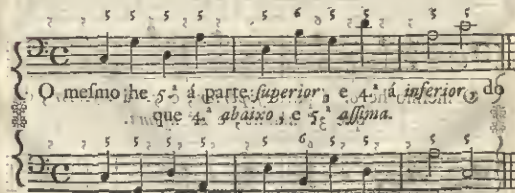 5 5 5 5 5 6 5 5 5 5
O meſmo he 5.ª á parte ſuperior, e 4.ª á inferior, do
que 4.ª abaixo, e 5.ª aſſima.
5 5 5 5 5 6 5 5 5 5